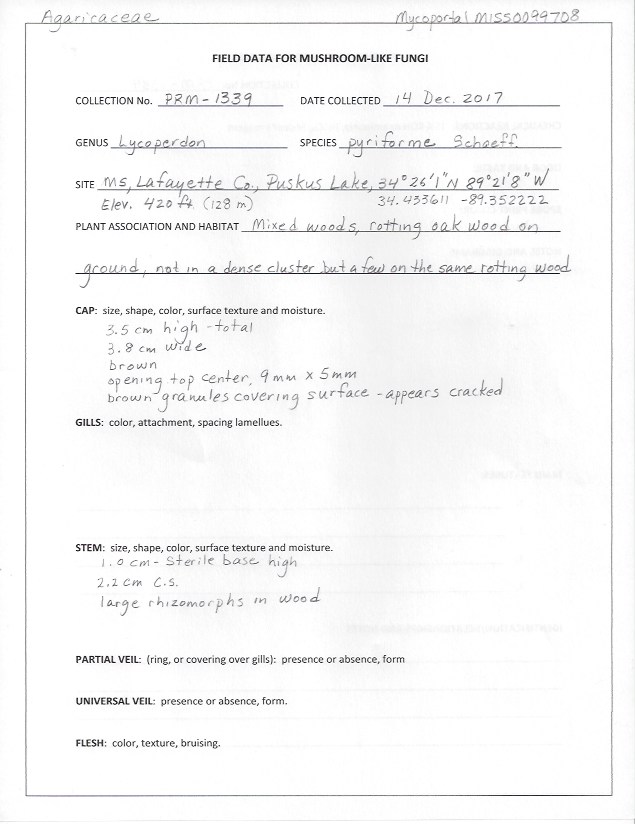 Agaricaceae Mycoportal MISS0099708
FIELD DATA FOR MUSHROOM-LIKE FUNGI
COLLECTION No. PRM-1339 DATE COLLECTED 14 Dec. 2017
GENUS Lycoperdon SPECIES pyriforme Schaeff.
SITE MS, Lafayette Co., Puskus Lake, 34°26'1"N 89°21'8"W
Elev. 420 ft (128 m) 34.433611 -89.352222
PLANT ASSOCIATION AND HABITAT Mixed woods, rotting oak wood on
ground, not in a dense cluster but a few on the same rotting wood
CAP: size, shape, color, surface texture and moisture.
3.5 cm high - total
3.8 cm wide
brown
opening top center, 9mm x 5mm
brown granules covering surface - appears cracked
GILLS: color, attachment, spacing lamellues.
STEM: size, shape, color, surface texture and moisture.
1.0 cm - Sterile base high
2.2 cm C.S.
large rhizomorphs in wood
PARTIAL VEIL: (ring, or covering over gills): presence or absence, form
UNIVERSAL VEIL: presence or absence, form.
FLESH: color, texture, bruising.